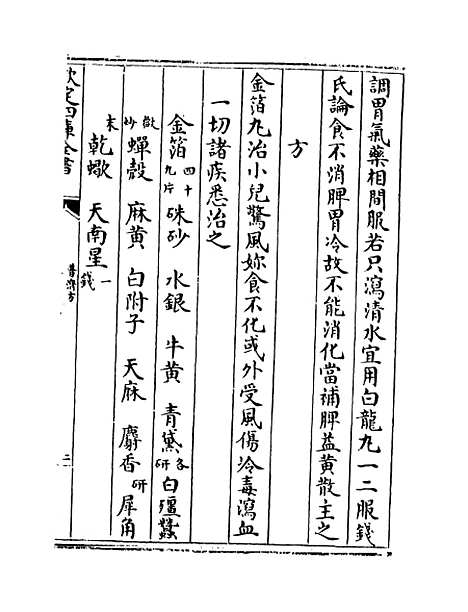 調胃氣藥相間服若只瀉清水宜用白龍丸一二服錢
氏論食不消脾胃冷故不能消化當補脾益黄散主之
方
金箔丸治小兒驚風妳食不化或外受風傷冷毒瀉血
一切諸疾悉治之
金箔四十九片 硃砂 水銀 牛黄 青黛各研 白殭蠶
微炒 蟬殼 麻黄 白附子 天麻 麝香研 犀角
末 乾蠍 天南星一錢
欽定四庫全書
普濟方
二